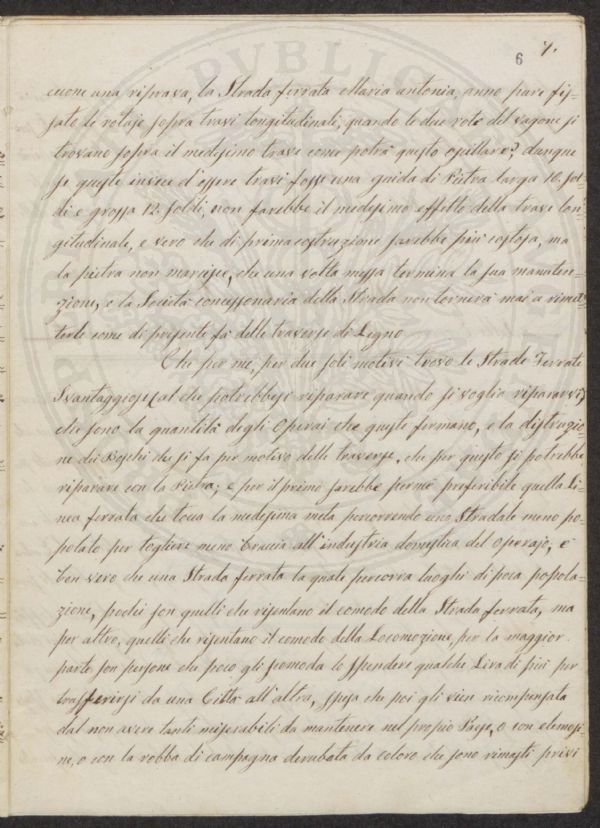 6 7.
cuone una riprava, la Strada ferrata Maria antonia, anno pure fis=
sato le rotaje sopra travi longitudinali, quando le due rote del vagone si
trovano sopra il medesimo trave come potrà questo oscillare?, dunque
se queste invece d'essere travi fosse una guida di Pietra larga 10. Sol=
di e grossa 12. Soldi, non farebbe il medesimo effetto della trave lon
gitudinale, e vero che di prima costruzione sarebbe più costosa, ma
la pietra non marcisce, che una volta messa termina la sua manuten=
zione, e la Società concessonaria della Strada non tornerà mai a rimet
terle come di presente fà delle traverse di Legno
Che per me, per due soli motivi trovo le Strade Ferrate
Svantaggiose (al che potrebbesi riparare quando si voglio ripararvi)
che sono la quantità degli Operai che queste fermano, e la distruzio=
ne dei Boschi che si fà per motivo delle traverse, che per questo si potrebbe
riparare con la Pietra; e per il primo sarebbe perme preferibile quella Li=
nea ferrata che toca la medesima meta percorrendo uno Stradale meno po=
polato per togliere meno braccia all'industria domestica del Operajo, è
ben vero che una Strada ferrata la quale percorra luoghi di poca popola=
zione, pochi son quelli che risentano il comodo della Strada ferrata, ma
per altro, quelli che risentano il comodo della Locomozione, per la maggior
parte son persone che poco gli scomoda lo spendere qualche Lira di più per
trasfferirsi da una Città all'altra, spesa che poi gli vien ricompensata
dal non avere tanti miserabili da mantenere nel proprio Paese, o con elemosi=
ne, o con la robba di campagna derubata da coloro che sono rimasti privi